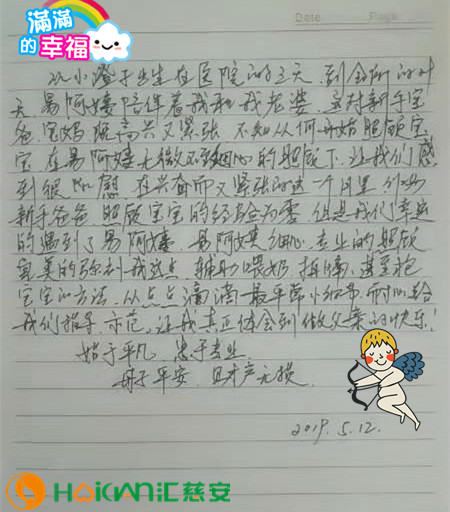 滿滿
的幸福
Date Page
从小澄子出生在医院的三天 到今天的廿
天 易阿姨陪伴着我和我老婆 这对新手宝
爸、宝妈既高兴又紧张 不知从何开始照顾宝
宝 在易阿姨无微不至细心的照顾下 让我们感
到很 慰 在兴奋而又紧张的这一个月里 我
新手爸爸 照顾宝宝的经验为零 但是我们幸运
的遇到了易阿姨 易阿姨细心、专业的照顾
完美的弥补我这点 辅助喂奶 拍嗝 甚至抱
宝宝的方法 从点点滴滴最平常小细节 耐心给
我们指导 示范 让我真正体会到做父亲的快乐!
始于平凡 忠于专业
母子平安 且财产无损
2019. 5. 12.
HOIKAN汇慈安